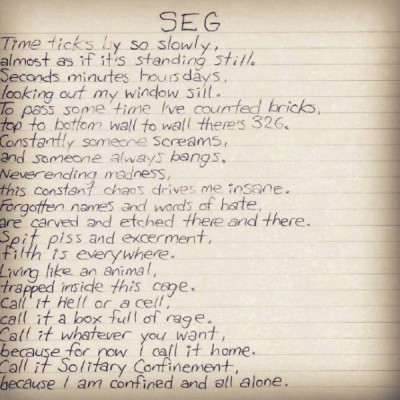 SEG
Time ticks by so slowly,
almost as if it's standing still.
Seconds minutes hours days,
looking out my window sill.
To pass some time I've counted bricks,
top to bottom wall to wall there's 326.
Constantly someone screams,
and someone always bangs.
Neverending madness,
this constant chaos drives me insane.
Forgotten names and words of hate,
are carved and etched there and there.
Spit piss and excerment,
filth is everywhere.
Living like an animal,
trapped inside this cage.
Call it Hell or a cell,
call it a box full of rage.
Call it whatever you want,
because for now I call it home.
Call it Solitary Confinement,
because I am confined and all alone.